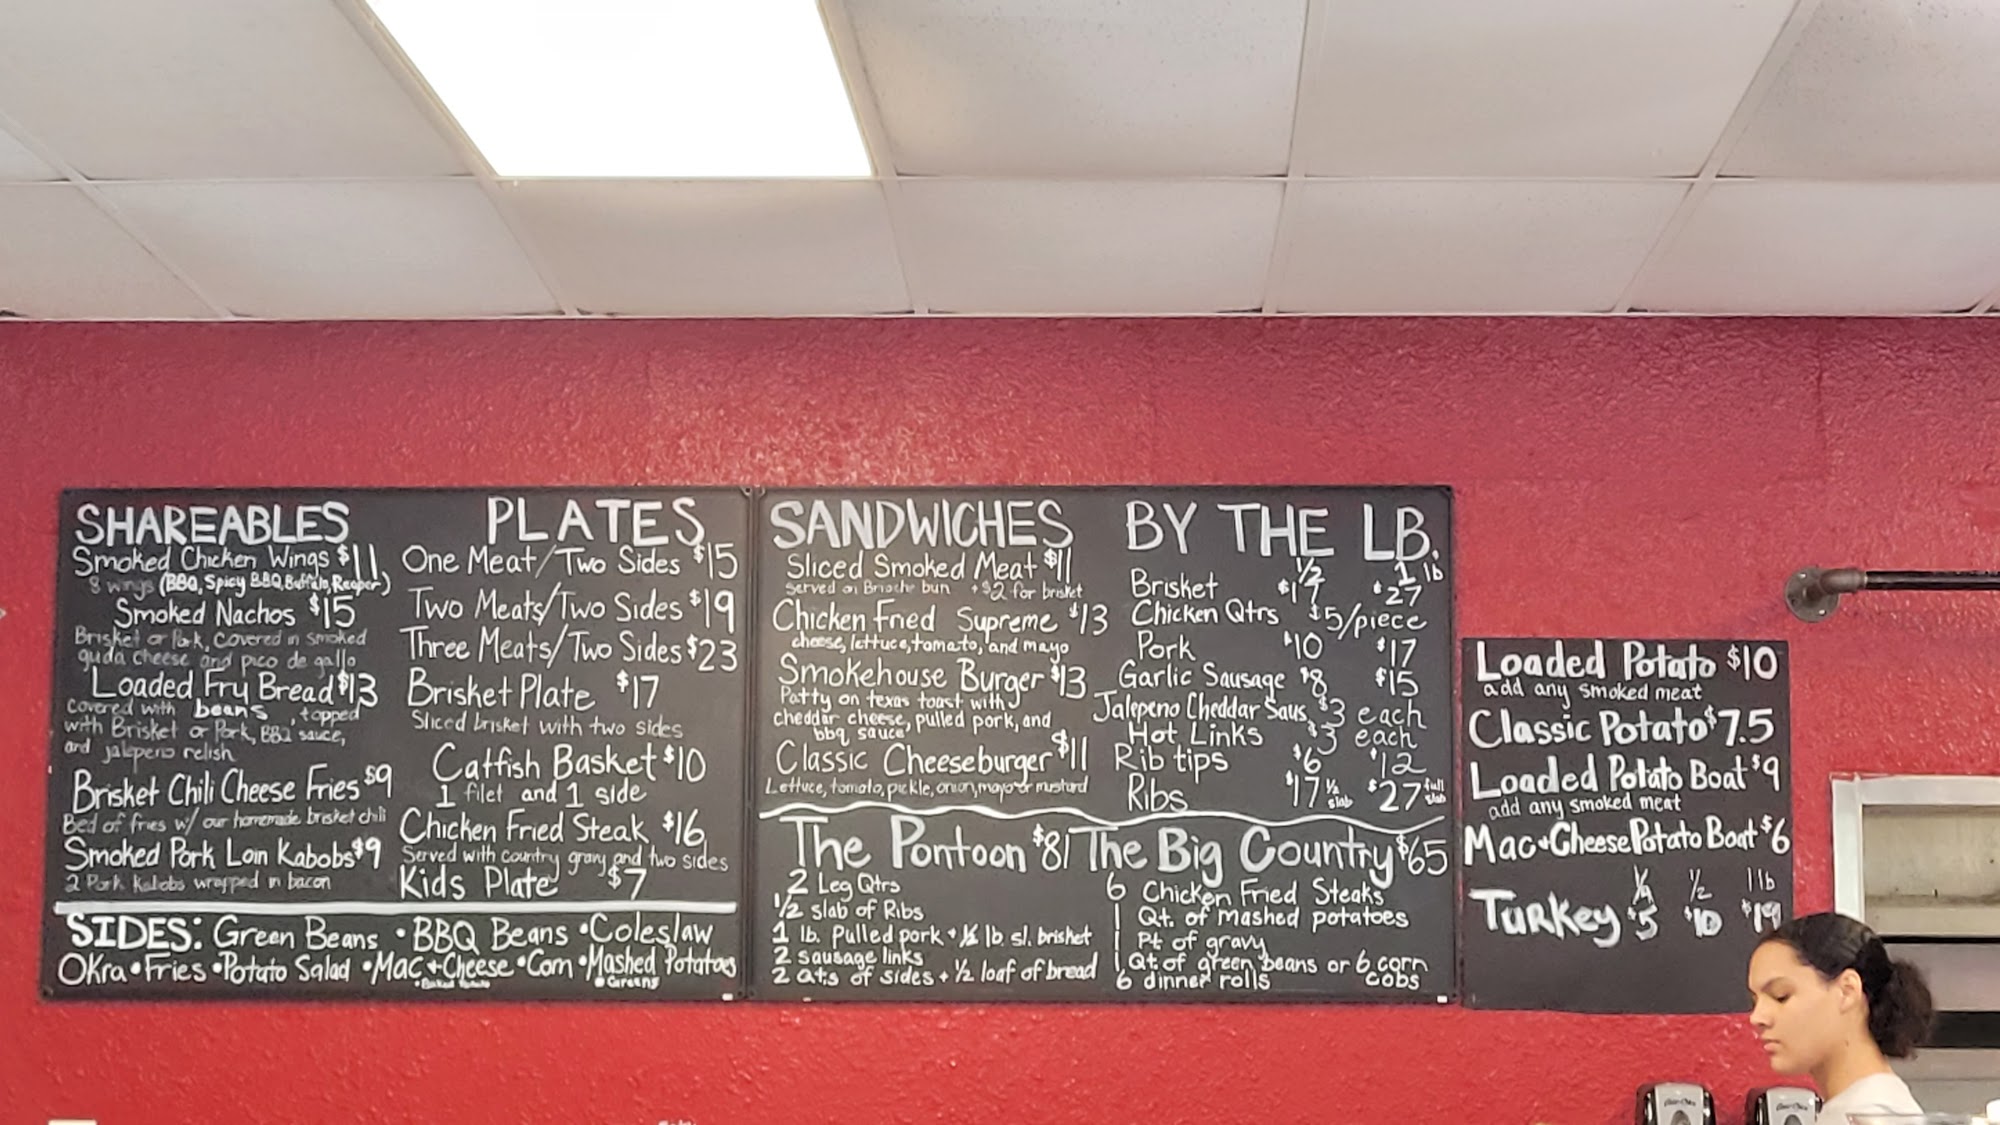 SHAREABLES
Smoked Chicken Wings $11
8 wings (BBQ, Spicy BBQ, Buffalo, Reaper)
Smoked Nachos $15
Brisket or Pork, Covered in smoked
guda cheese and pico de gallo
Loaded Fry Bread $13
covered with beans, topped
with Brisket or Pork, BBQ sauce,
and jalepeno relish
Brisket Chili Cheese Fries $9
Bed of fries w/ our homemade brisket chili
Smoked Pork Loin Kabobs $9
2 Pork Kabobs wrapped in bacon
PLATES
One Meat/Two Sides $15
Two Meats/Two Sides $19
Three Meats/Two Sides $23
Brisket Plate $17
Sliced brisket with two sides
Catfish Basket $10
1 filet and 1 side
Chicken Fried Steak $16
Served with country gravy and two sides
Kids Plate $7
SIDES: Green Beans • BBQ Beans • Coleslaw
Okra • Fries • Potato Salad • Mac + Cheese • Corn • Mashed Potatoes
• Baked Potato • Greens
SANDWICHES
Sliced Smoked Meat $11
Served on Brioche bun + $2 for brisket
Chicken Fried Supreme $13
cheese, lettuce, tomato, and mayo
Smokehouse Burger $13
Patty on texas toast with
cheddar cheese, pulled pork, and
bbq sauce
Classic Cheeseburger $11
Lettuce, tomato, pickle, onion, mayo or mustard
BY THE LB.
1/2 1 lb
Brisket $17 $27
Chicken Qtrs $5/piece
Pork $10 $17
Garlic Sausage $8 $15
Jalepeno Cheddar Saus. $3 each
Hot Links $3 each
Rib tips $6 $12
Ribs $17 1/2 slab $27 full slab
The Pontoon $81
2 Leg Qtrs
1/2 slab of Ribs
1 lb. Pulled pork + 1/2 lb. sl. brisket
2 sausage links
2 qts of sides + 1/2 loaf of bread
The Big Country $65
6 Chicken Fried Steaks
1 Qt. of mashed potatoes
1 Pt of gravy
1 Qt of green beans or 6 corn cobs
6 dinner rolls
Loaded Potato $10
add any smoked meat
Classic Potato $7.5
Loaded Potato Boat $9
add any smoked meat
Mac + Cheese Potato Boat $6
1/4 1/2 1 lb
Turkey $5 $10 $19